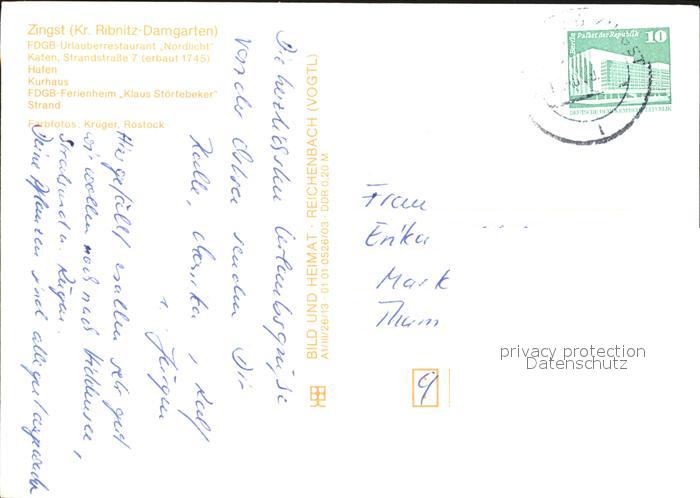 Zingst (Kr. Ribnitz-Damgarten)
FDGB-Urlauberrestaurant „Nordlicht"
Katen, Strandstraße 7 (erbaut 1745)
Hafen
Kurhaus
FDGB-Ferienheim „Klaus Störtebeker"
Strand
Farbfotos: Krüger, Rostock
Die herzlichsten Urlaubsgrüße
von der Ostsee senden Dir
Kalle, Ralf
u. Jürgen
Hier gefällt es allen sehr gut
wir wollen noch nach Hiddensee,
Stralsund u. Rügen.
Deine Pflanzen sind alle gut angewachs
BILD UND HEIMAT · REICHENBACH (VOGTL)
A1/III/26/13 · 01 01 0526/03 · DDR 0,20 M
Berlin Palast der Republik
10
DEUTSCHE DEMOKRATISCHE REPUBLIK
Frau
Erika
Mark
Thurm
9
privacy protection
Datenschutz